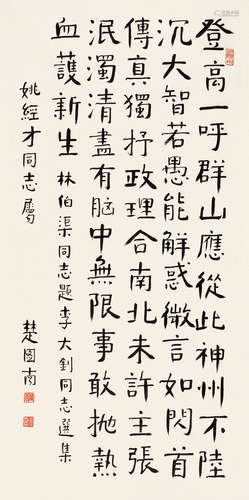 登高一呼群山應從此神州不陸
沉大智若愚能解惑微言如閃首
傳真獨抒政理合南北未許主張
泯濁清盡有脑中無限事敢抛熱
血護新生 林伯渠同志題李大釗同志選集
姚經才同志屬
楚圖南